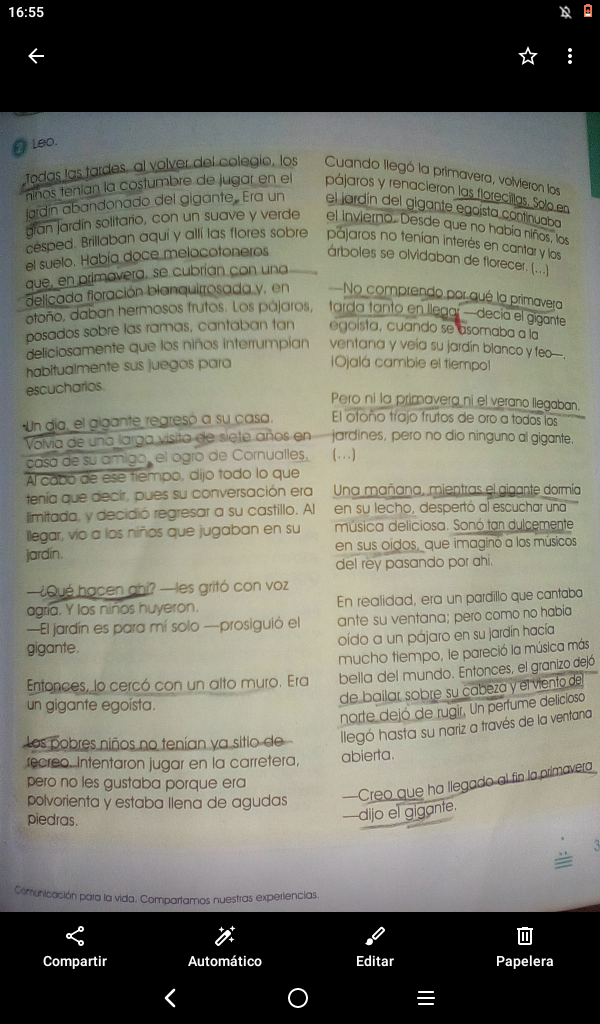 16:55
2 Leo.
Todas las tardes, al volver del colegio, los
niños tenían la costumbre de jugar en el
jardín abandonado del gigante. Era un
gran jardín solitario, con un suave y verde
césped. Brillaban aquí y allí las flores sobre
el suelo. Había doce melocotoneros
que, en primavera, se cubrían con una
delicada floración blanquirrosada y, en
otoño, daban hermosos frutos. Los pájaros,
posados sobre las ramas, cantaban tan
deliciosamente que los niños interrumpían
habitualmente sus juegos para
escucharlos.
Un día, el gigante regresó a su casa.
Volvía de una larga visita de siete años en
casa de su amigo, el ogro de Cornualles.
Al cabo de ese tiempo, dijo todo lo que
tenía que decir, pues su conversación era
limitada, y decidió regresar a su castillo. Al
llegar, vio a los niños que jugaban en su
jardín.
—¿Qué hacen ahí? —les gritó con voz
agria. Y los niños huyeron.
—El jardín es para mí solo —prosiguió el
gigante.
Entonces, lo cercó con un alto muro. Era
un gigante egoísta.
Los pobres niños no tenían ya sitio de
recreo. Intentaron jugar en la carretera,
pero no les gustaba porque era
polvorienta y estaba llena de agudas
piedras.
Cuando llegó la primavera, volvieron los
pájaros y renacieron las florecillas. Solo en
el jardín del gigante egoísta continuaba
el invierno. Desde que no había niños, los
pájaros no tenían interés en cantar y los
árboles se olvidaban de florecer. (...)
—No comprendo por qué la primavera
tarda tanto en llegar —decía el gigante
egoísta, cuando se asomaba a la
ventana y veía su jardín blanco y feo—.
¡Ojalá cambie el tiempo!
Pero ni la primavera ni el verano llegaban.
El otoño trajo frutos de oro a todos los
jardines, pero no dio ninguno al gigante.
(...)
Una mañana, mientras el gigante dormía
en su lecho, despertó al escuchar una
música deliciosa. Sonó tan dulcemente
en sus oídos, que imaginó a los músicos
del rey pasando por ahí.
En realidad, era un pardillo que cantaba
ante su ventana; pero como no había
oído a un pájaro en su jardín hacía
mucho tiempo, le pareció la música más
bella del mundo. Entonces, el granizo dejó
de bailar sobre su cabeza y el viento del
norte dejó de rugir. Un perfume delicioso
llegó hasta su nariz a través de la ventana
abierta.
—Creo que ha llegado al fin la primavera
—dijo el gigante.
3
Comunicación para la vida. Compartamos nuestras experiencias.
Compartir
Automático
Editar
Papelera